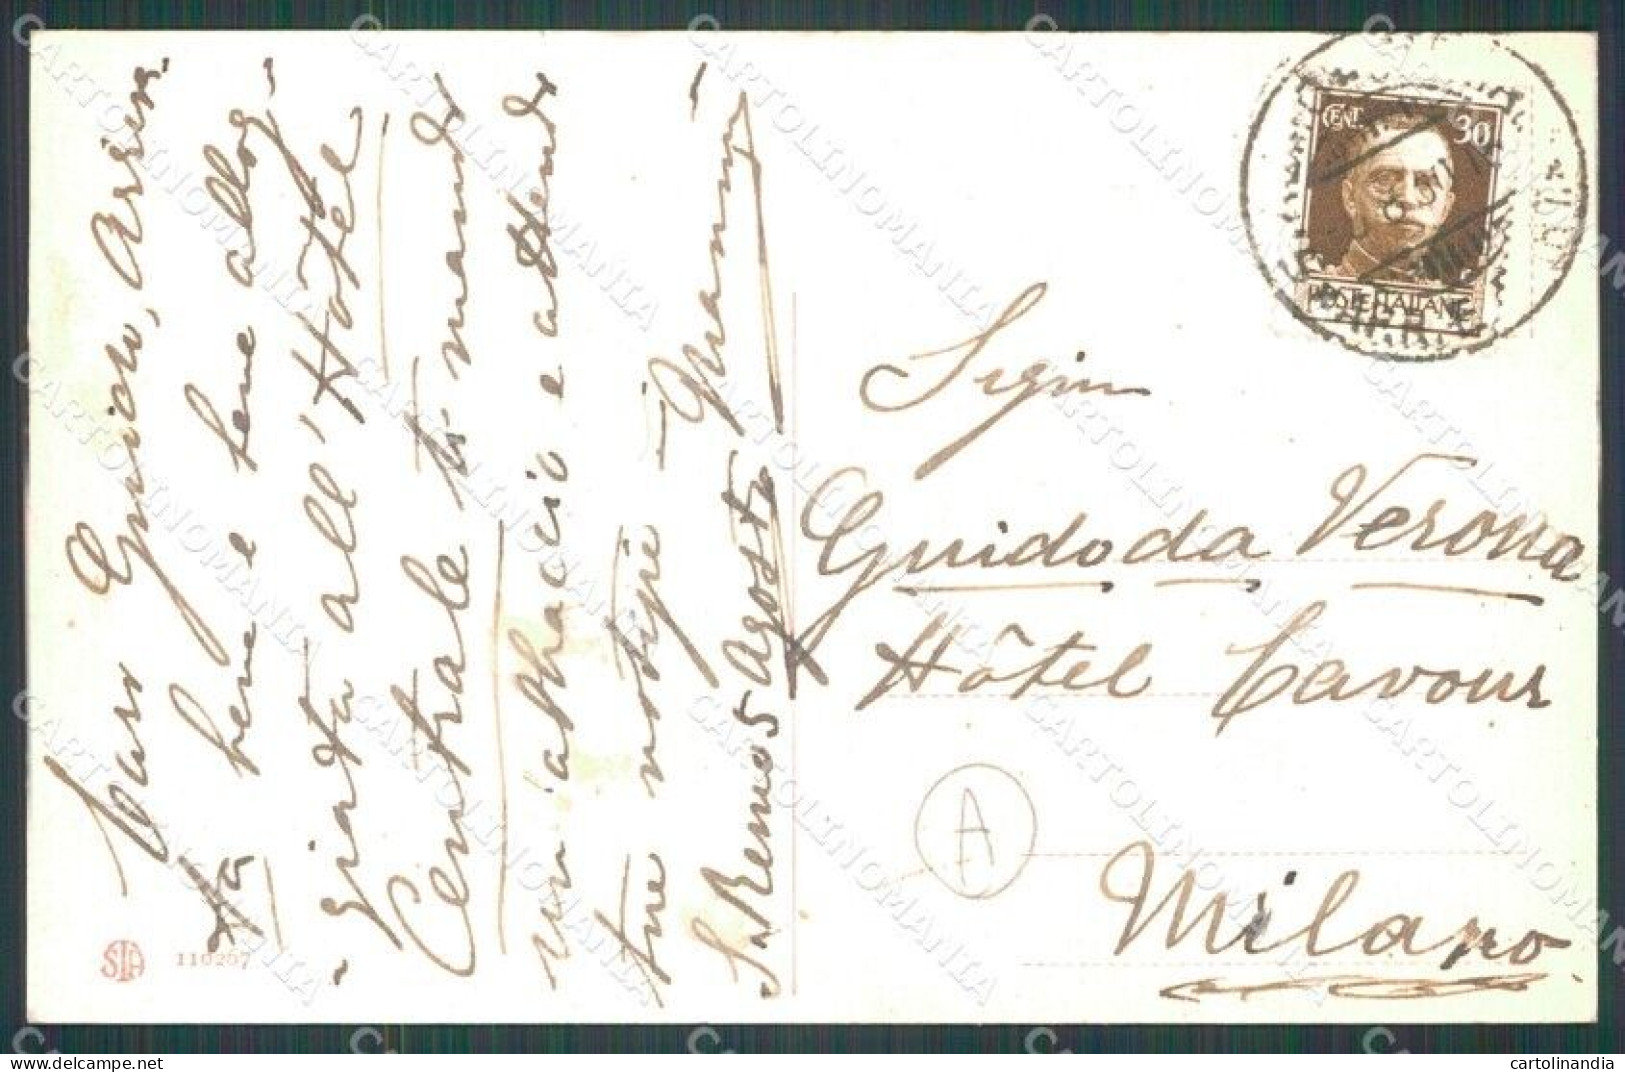 Caro Guido, Arriva-
ta bene e bene allog-
-giata all'Hôtel
Centrale ti mando
un abbraccio e attendo
tue notizie -
Mammà -
S. Remo 5 Agosto
STA 110267
CENT. 30
POSTE ITALIANE
Sigin
Guido da Verona
Hôtel Cavour
A
Milano
CARTOLINOMANIA
cartolinandia